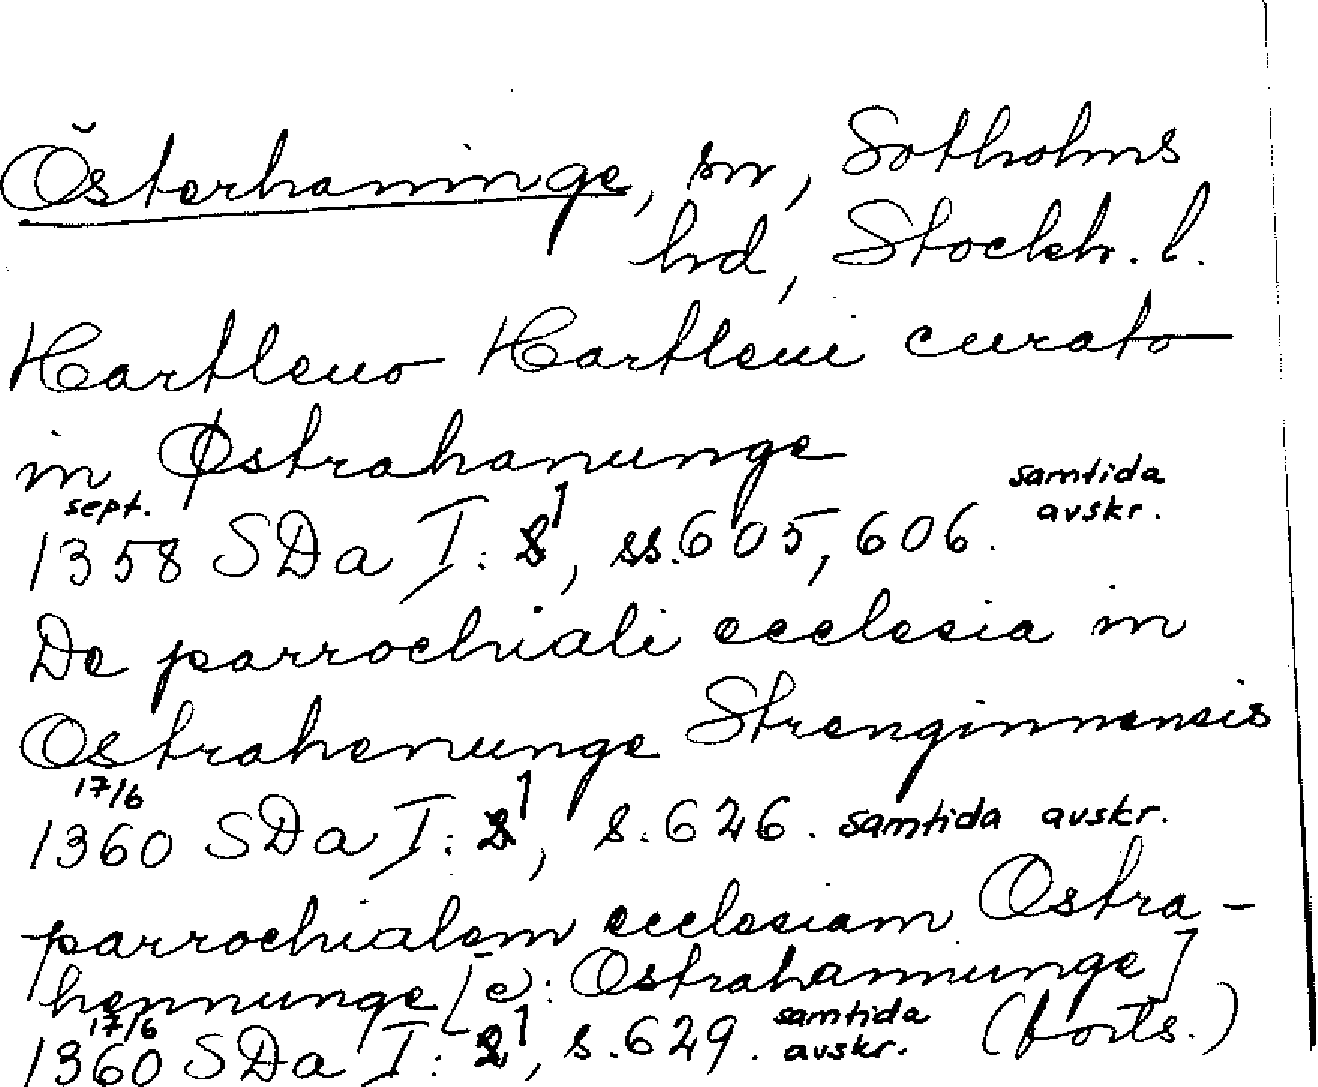 Österhaninge, sn, Sotholms
hd, Stockh. l.
Hartleuo Hartleui curato
in Østrahanunge
sept. samtida avskr.
1358 SDa I: 1, ss. 605, 606.
De parrochiali ecclesia in
Ostrahenunge Strenginnensis
17/6
1360 SDa I: 1, s. 626. samtida avskr.
parrochialem ecclesiam Ostra-
hennunge [c: Ostrahannunge]
17/6 samtida avskr.
1360 SDa I: 1, s. 629. (forts.)